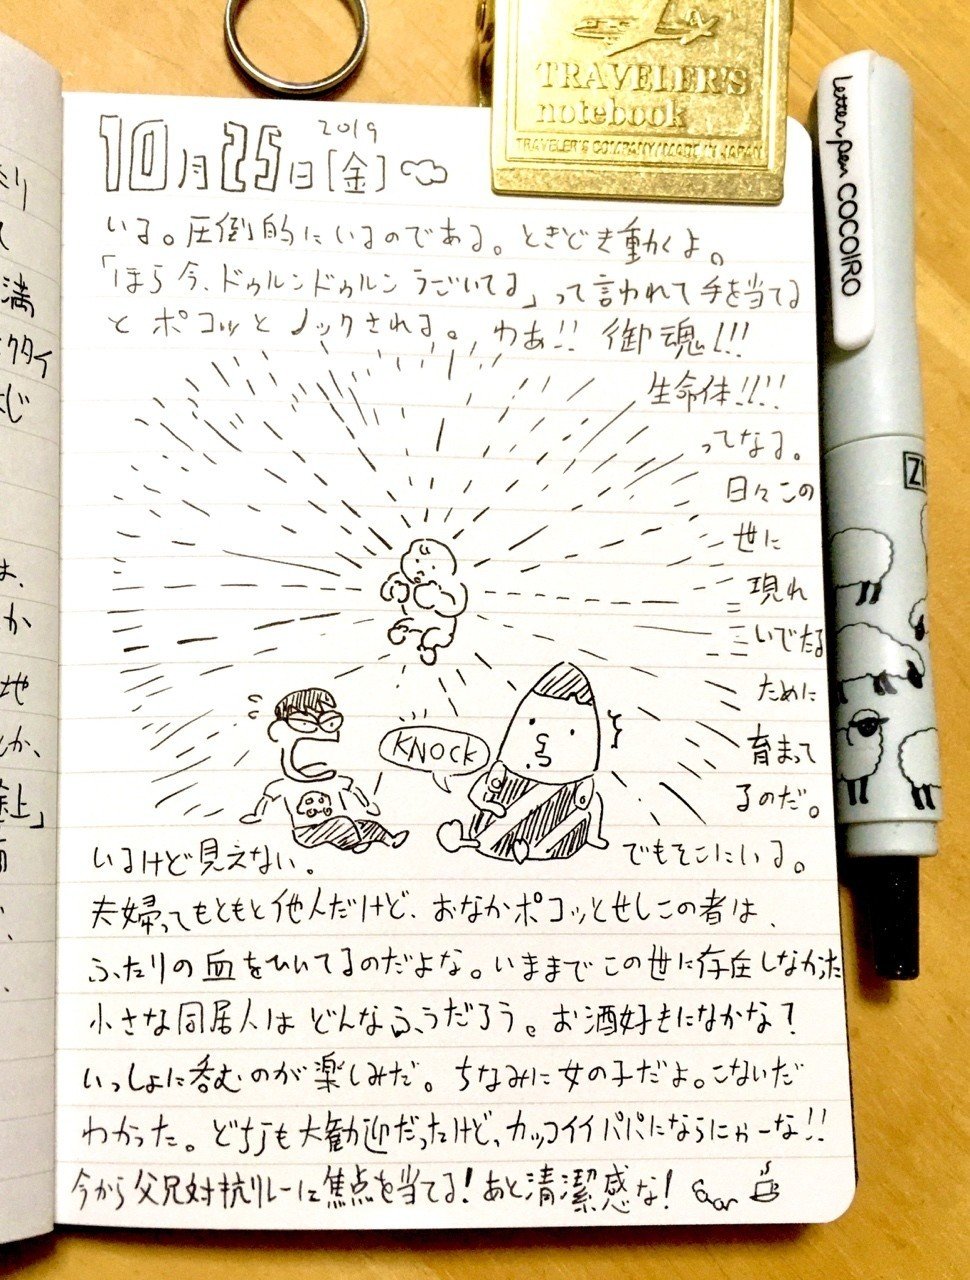 TRAVELER'S
notebook
TRAVELER'S COMPANY MADE IN JAPAN
2019
10月25日[金]
いる。圧倒的にいるのである。ときどき動くよ。
「ほら今、ドゥルンドゥルンうごいてる」って言われて手を当てる
とポコッとノックされる。わあ!!御魂!!!
生命体!!!!
ってなる。
日々この
世に
現れ
いでたる
ために
育まって
るのだ。
KNOCK
いるけど見えない.
でもそこにいる。
夫婦ってもともと他人だけど、おなかポコッとせしこの者は、
ふたりの血をひいてるのだよな。いままでこの世に存在しなかった
小さな同居人はどんなふうだろう。お酒好きになかな?
いっしょに呑むのが楽しみだ。ちなみに女の子だよ。こないだ
わかった。どちらも大歓迎だったけど、カッコイイパパにならにゃーな!!
今から父兄対抗リレーに焦点を当てる!あと清潔感な!
letter pen COCOIRO
たり
満
クタイ
まじ
は、
か
地
とか、
途上」